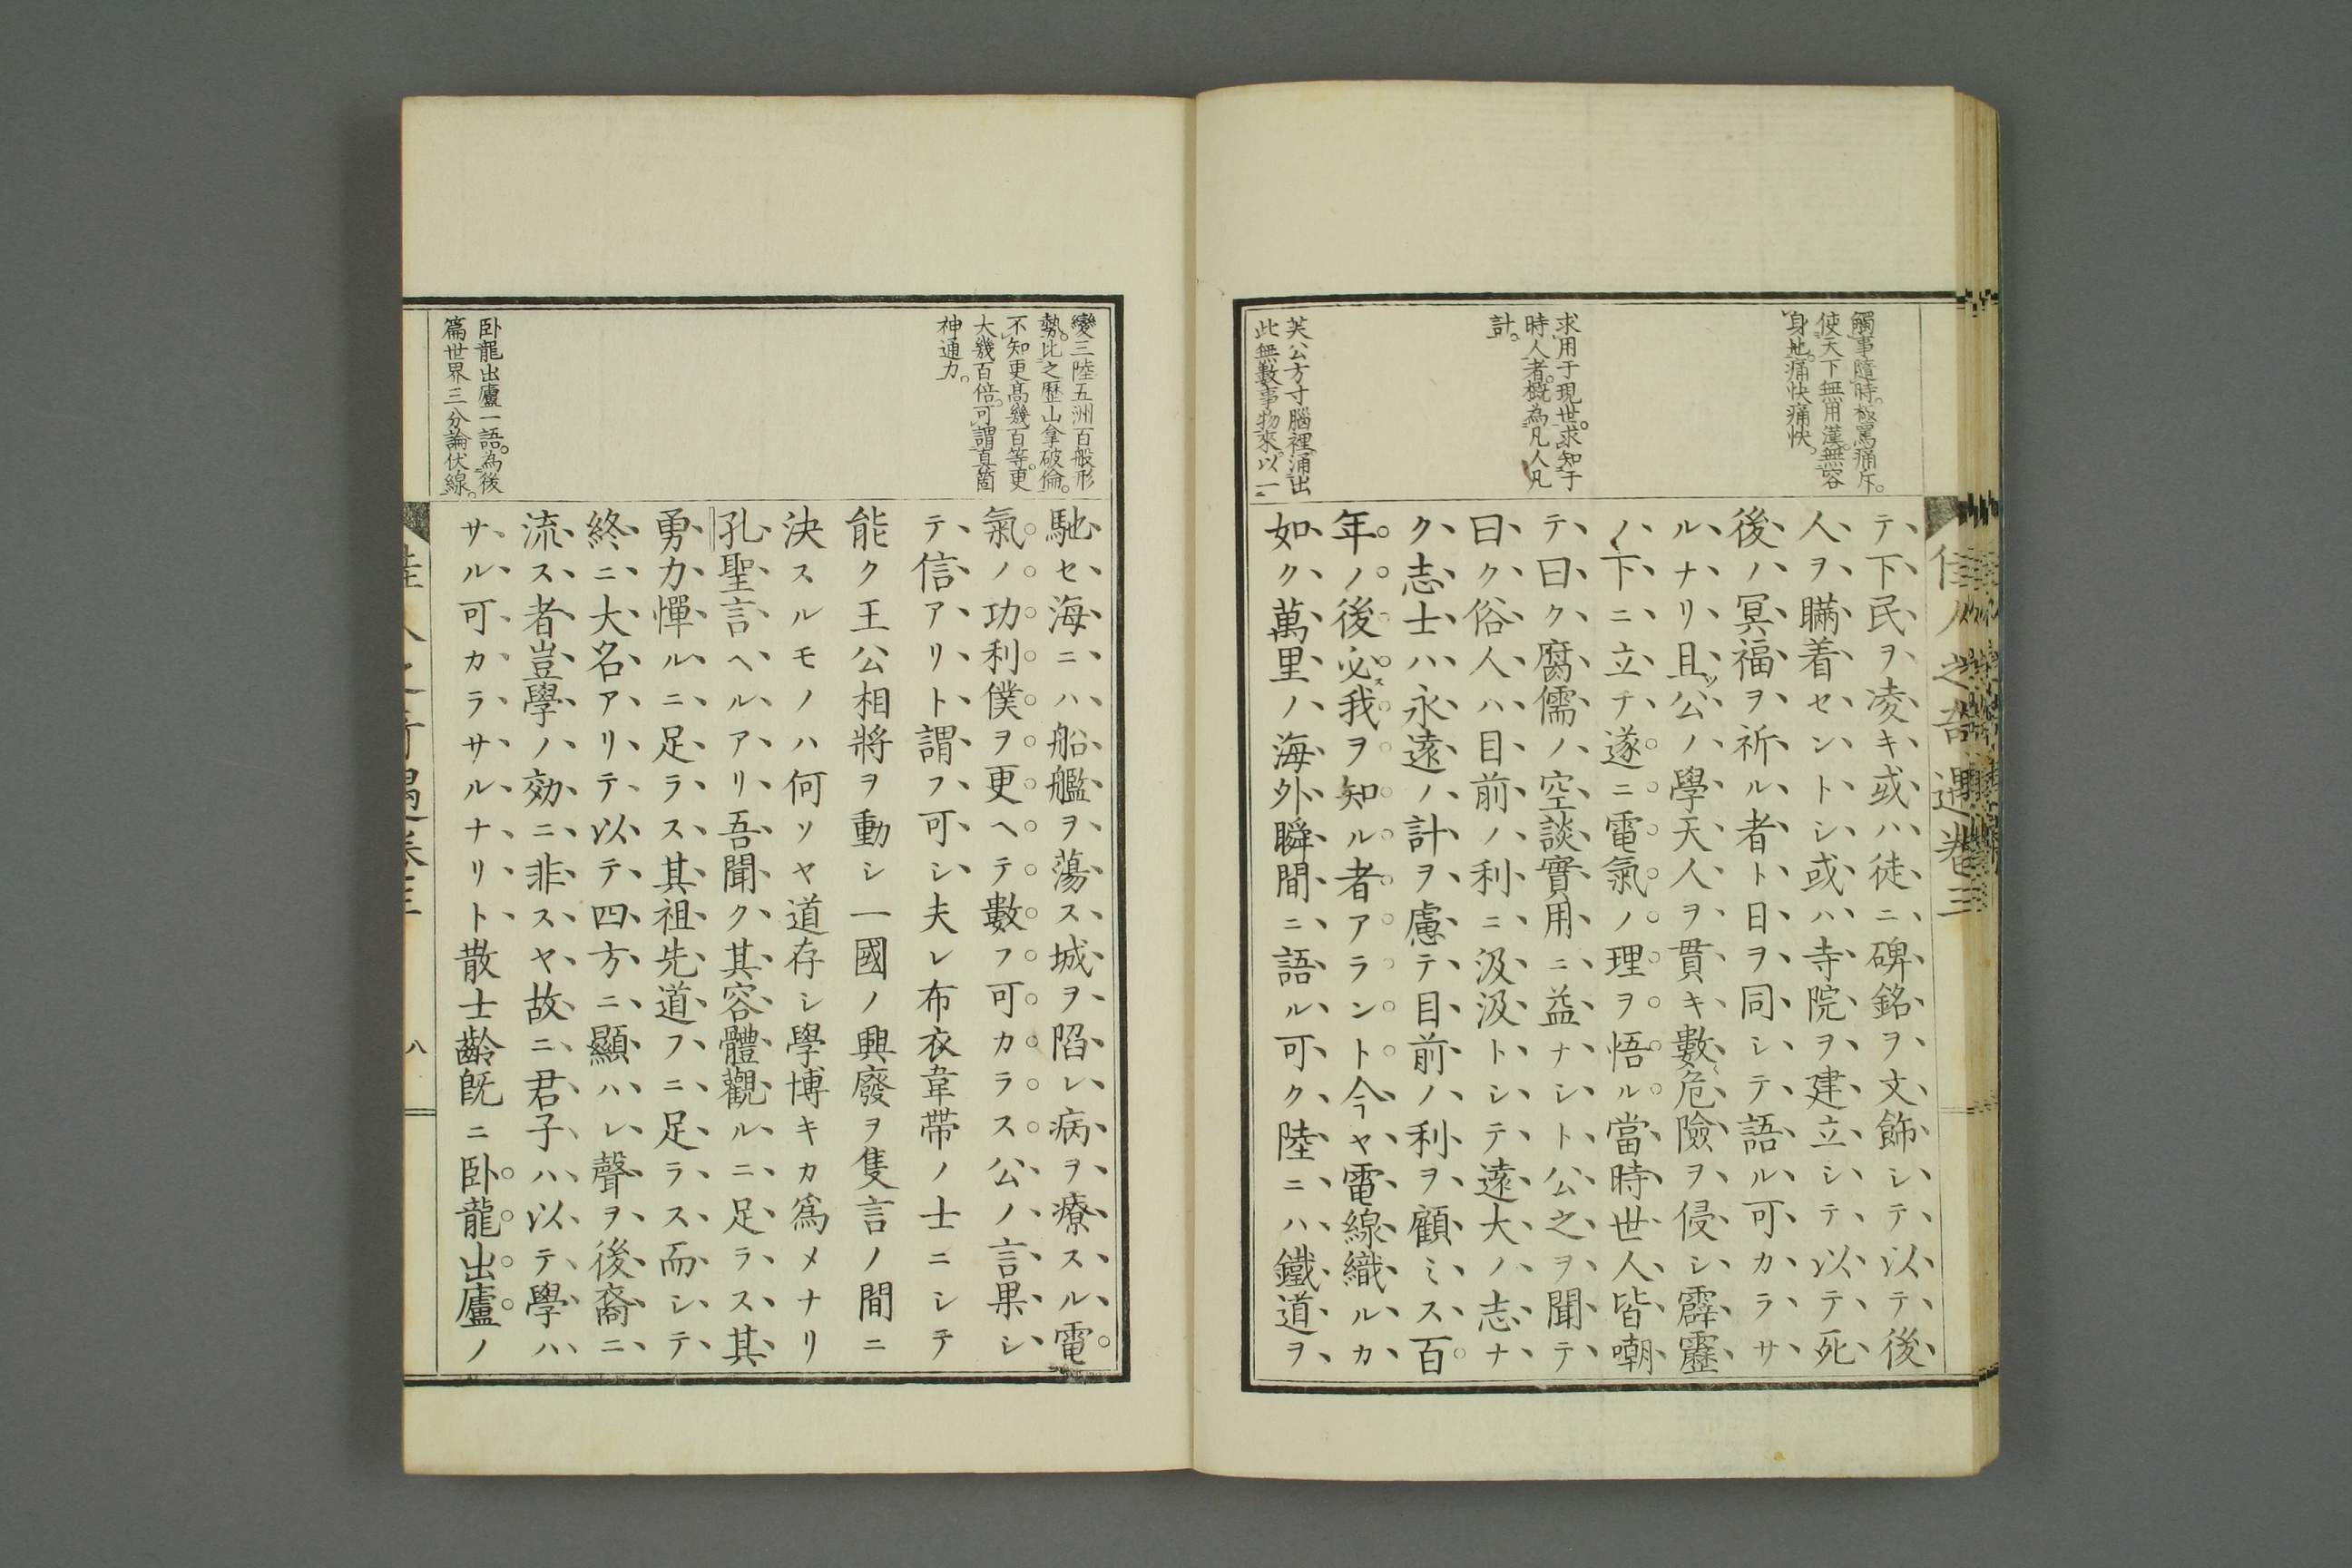 佳人之奇遇卷三
觸事隨時。極罵痛斥。
使天下無用漢。無容
身地。痛快痛快。
求用于現世。求知于
時人者。概為凡人凡
計。
芙公方寸腦裡。涌出
此無數事物來。以一
テ下民ヲ凌キ或ハ徒ニ碑銘ヲ文飾シテ以テ後
人ヲ瞞着セントシ或ハ寺院ヲ建立シテ以テ死
後ノ冥福ヲ祈ル者ト日ヲ同シテ語ル可カラサ
ルナリ且ツ公ノ學天人ヲ貫キ數〻危險ヲ侵シ霹靂
ノ下ニ立チ遂ニ電氣ノ理ヲ悟ル當時世人皆嘲
テ曰ク腐儒ノ空談實用ニ益ナシト公之ヲ聞テ
曰ク俗人ハ目前ノ利ニ汲汲トシテ遠大ノ志ナ
ク志士ハ永遠ノ計ヲ慮テ目前ノ利ヲ顧ミス百
年ノ後必ス我ヲ知ル者アラント今ヤ電線織ルカ
如ク萬里ノ海外瞬間ニ語ル可ク陸ニハ鐵道ヲ
變三陸五洲百般形
勢。比之歷山拿破倫。
不知更高幾百等。更
大幾百倍。可謂真箇
神通力。
臥龍出廬一語。為後
篇世界三分論伏線。
馳セ海ニハ船艦ヲ蕩ス城ヲ陷レ病ヲ療スル電
氣ノ功利僕ヲ更ヘテ數フ可カラス公ノ言果シ
テ信アリト謂フ可シ夫レ布衣韋帶ノ士ニシテ
能ク王公相將ヲ動シ一國ノ興廢ヲ隻言ノ間ニ
決スルモノハ何ソヤ道存シ學博キカ爲メナリ
孔聖言ヘルアリ吾聞ク其容體觀ルニ足ラス其
勇力憚ルニ足ラス其祖先道フニ足ラス而シテ
終ニ大名アリテ以テ四方ニ顯ハレ聲ヲ後裔ニ
流ス者豈學ノ効ニ非スヤ故ニ君子ハ以テ學ハ
サル可カラサルナリト散士齡既ニ臥龍出廬ノ
八